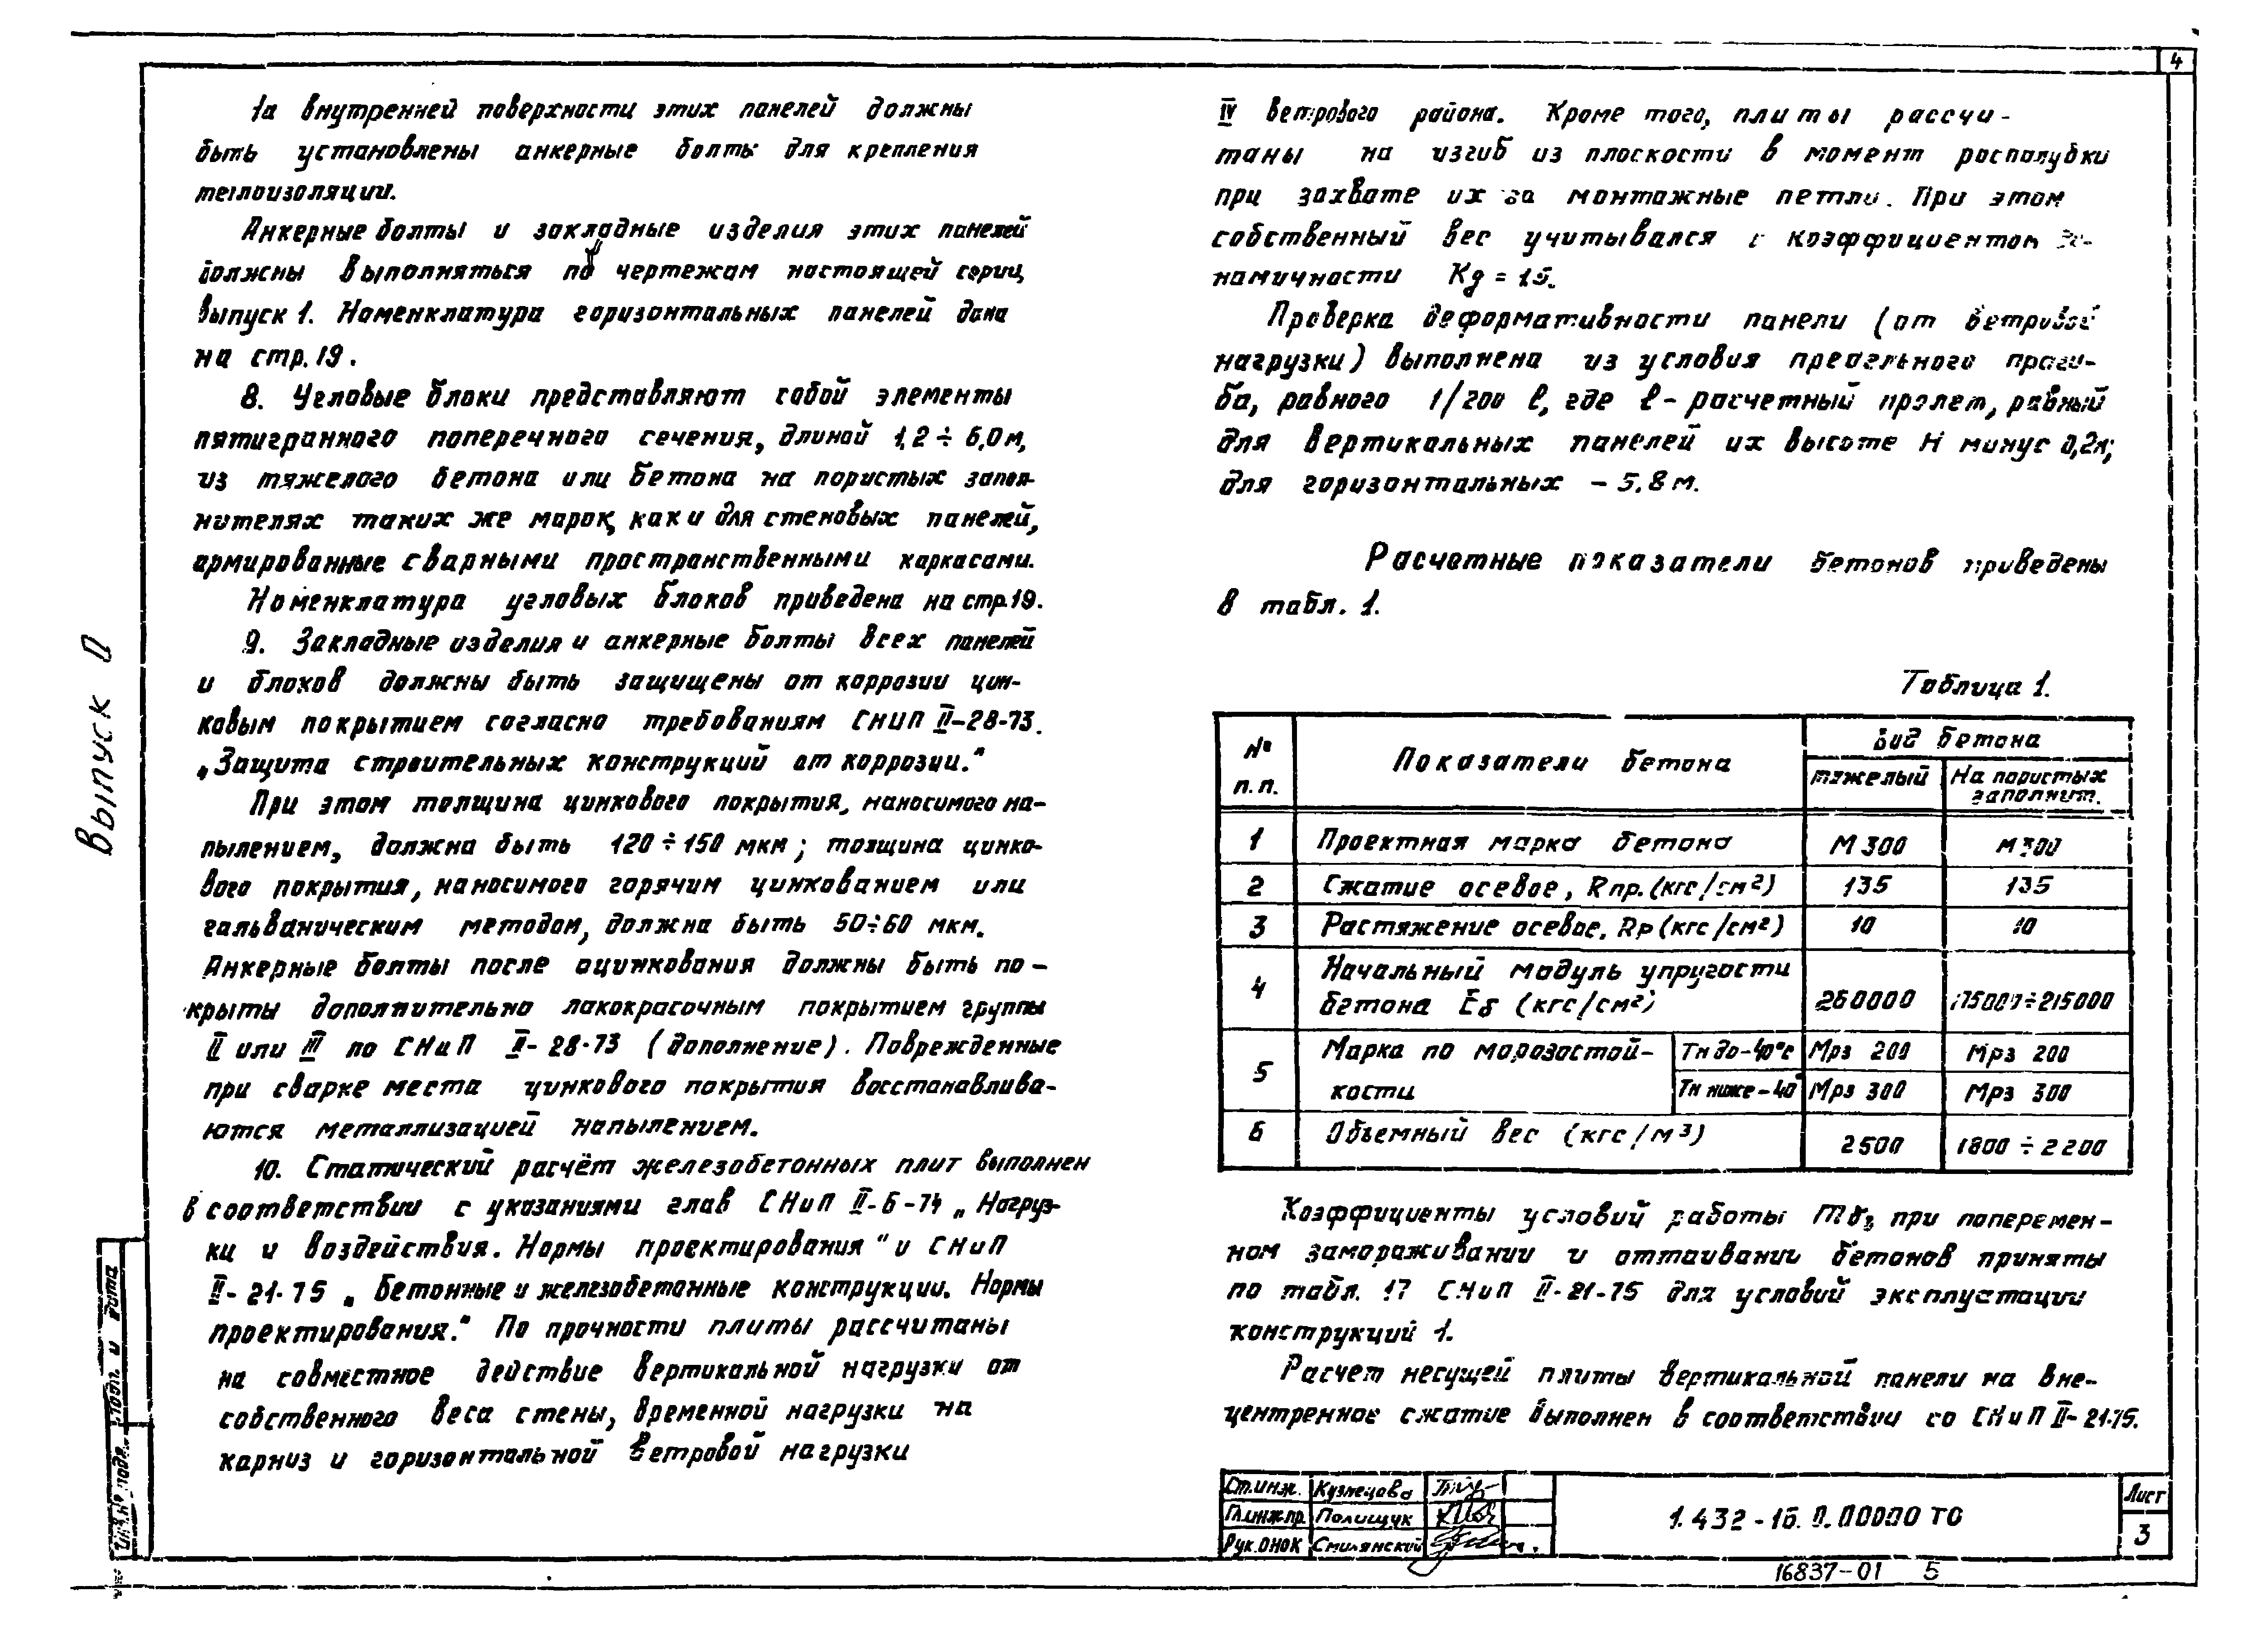 4
На внутренней поверхности этих панелей должны
быть установлены анкерные болты для крепления
теплоизоляции.
Анкерные болты и закладные изделия этих панелей
должны выполняться по чертежам настоящей серии,
выпуск 1. Номенклатура горизонтальных панелей дана
на стр. 19.
8. Угловые блоки представляют собой элементы
пятигранного поперечного сечения, длиной 1,2 ÷ 6,0 м,
из тяжелого бетона или бетона на пористых запол-
нителях таких же марок, как и для стеновых панелей,
армированные сварными пространственными каркасами.
Номенклатура угловых блоков приведена на стр. 19.
9. Закладные изделия и анкерные болты всех панелей
и блоков должны быть защищены от коррозии цин-
ковым покрытием согласно требованиям СНиП II-28-73.
„Защита строительных конструкций от коррозии."
При этом толщина цинкового покрытия, наносимого на-
пылением, должна быть 120 ÷ 150 мкм; толщина цинко-
вого покрытия, наносимого горячим цинкованием или
гальваническим методом, должна быть 50÷60 мкм.
Анкерные болты после оцинкования должны быть по-
крыты дополнительно лакокрасочным покрытием группы
II или III по СНиП II-28-73 (дополнение). Поврежденные
при сварке места цинкового покрытия восстанавлива-
ются металлизацией напылением.
10. Статический расчёт железобетонных плит выполнен
в соответствии с указаниями глав СНиП II-6-74 „Нагруз-
ки и воздействия. Нормы проектирования" и СНиП
II-21-75 „Бетонные и железобетонные конструкции. Нормы
проектирования." По прочности плиты рассчитаны
на совместное действие вертикальной нагрузки от
собственного веса стены, временной нагрузки на
карниз и горизонтальной ветровой нагрузки
IV ветрового района. Кроме того, плиты рассчи-
таны на изгиб из плоскости в момент распалубки
при захвате их за монтажные петли. При этом
собственный вес учитывался с коэффициентом ди-
намичности Кд = 1.5.
Проверка деформативности панели (от ветровой
нагрузки) выполнена из условия предельного проги-
ба, равного 1/200 ℓ, где ℓ - расчетный пролет, равный
для вертикальных панелей их высоте Н минус 0,2м;
для горизонтальных - 5.8 м.
Расчетные показатели бетонов приведены
в табл. 1.
Таблица 1.
№ п.п. Показатели бетона Вид бетона
тяжелый На пористых заполнит.
1 Проектная марка бетона М 300 М 300
2 Сжатие осевое, Rпр. (кгс/см²) 135 135
3 Растяжение осевое, Rр (кгс/см²) 10 10
4 Начальный модуль упругости
бетона Еб (кгс/см²) 260000 175000÷215000
5 Марка по морозостой- Тн до -40°с Мрз 200 Мрз 200
кости Тн ниже -40° Мрз 300 Мрз 300
6 Объемный вес (кгс/м³) 2500 1800 ÷ 2200
Коэффициенты условий работы mб₃ при поперемен-
ном замораживании и оттаивании бетонов приняты
по табл. 17 СНиП II-21-75 для условий эксплуатации
конструкций 1.
Расчет несущей плиты вертикальной панели на вне-
центренное сжатие выполнен в соответствии со СНиП II-21-75.
Выпуск 0
Подп. и дата
Инв. № подл.
Ст.инж. Кузнецова
Гл.инж.пр. Полищук
Рук. ОНОК Смилянский
1.432-15. 0.00000 ТО
Лист
3
16837-01 5